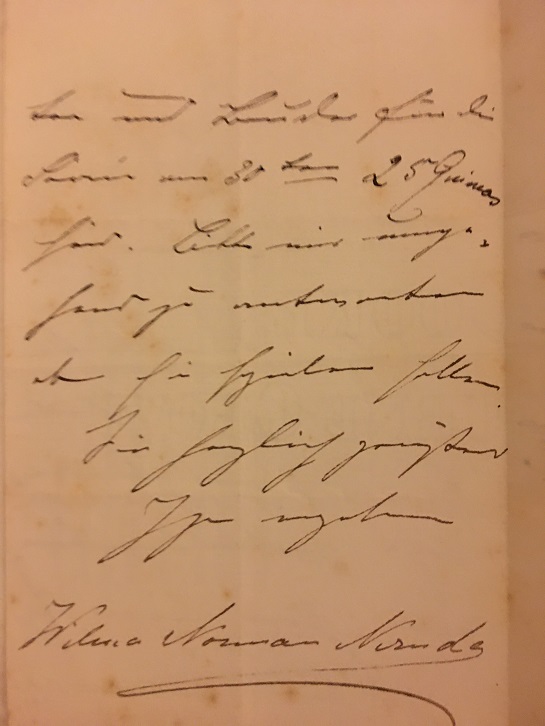 ten und Bruder für die
Soirée am 30 ten 25 Guineas
sind. Bitte mir umge-
hend zu antworten
ob sie spielen sollen.
Sie herzlich grüßend
Ihre ergebene
Wilma Norman Neruda